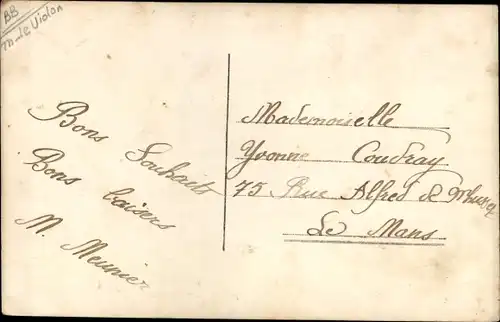 BB
M de Violon
Bons Souhaits
Bons baisers
M. Meunier
Mademoiselle
Yvonne Coudray
75 Rue Alfred de Musset
Le Mans